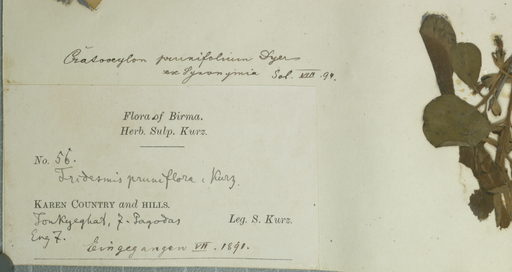 Cratoxylon prunifolium Dyer
ex Synonymia Sol. VIII 94.
Flora of Birma.
Herb. Sulp. Kurz.
No. 56.
Tridesmis pruniflora, Kurz.
KAREN COUNTRY and HILLS.
Tonkyeghat, 7-Pagodas Leg. S. Kurz.
Eng 7.
Eingegangen VII. 1891.